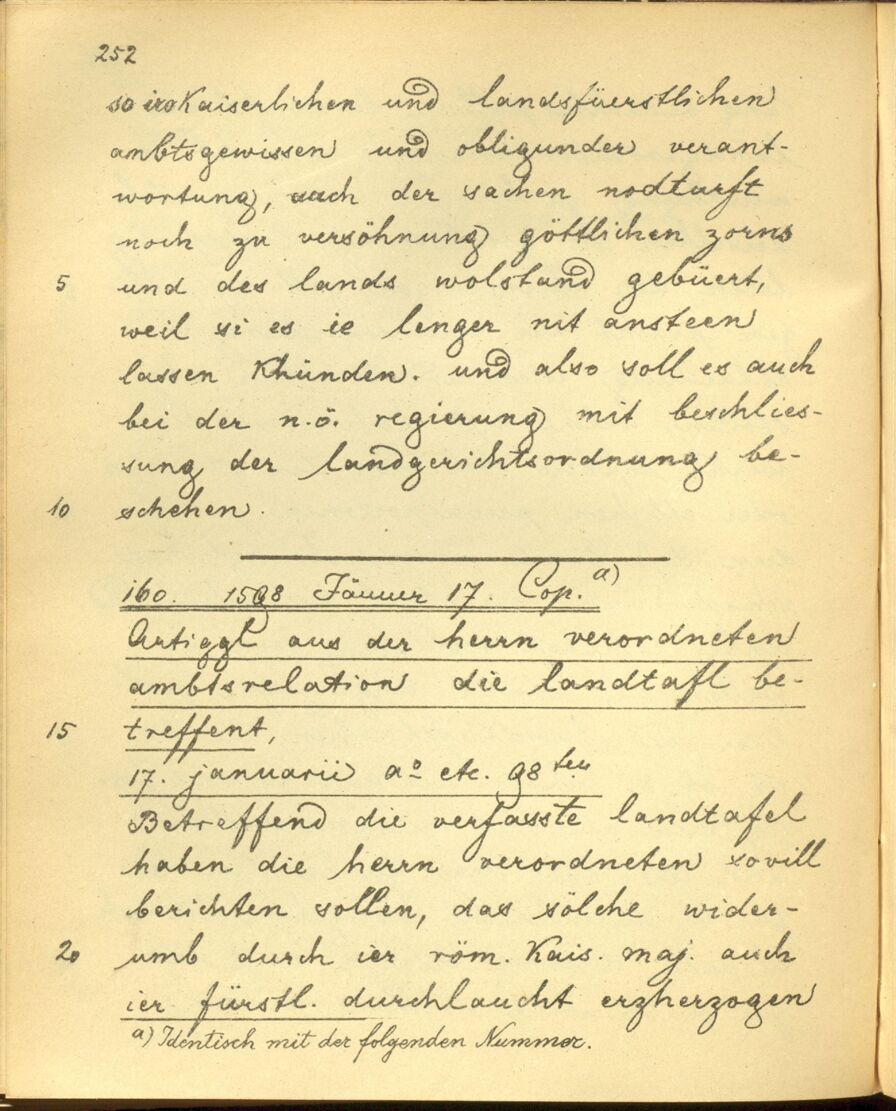 252
so iro Kaiserlichen und landsfüerstlichen
ambtsgewissen und obligunder verant-
wortung, auch der sachen nodturft
noch zu versöhnung göttlichen zorns
5 und des lands wolstand gebüert,
weil si es ie lenger nit ansteen
lassen Khünden. und also soll es auch
bei der n.ö. regierung mit beschlies-
sung der landgerichtsordnung be-
10 schehen.
160. 1598 Jänner 17. Cop. a)
Artiggl aus der herrn verordneten
ambtsrelation die landtafl be-
15 treffent,
17. januarii aº etc. 98ten
Betreffend die verfasste landtafel
haben die herrn verordneten sovill
berichten sollen, das sölche wider-
20 umb durch ier röm. Kais. maj. auch
ier fürstl. durchlaucht erzherzogen
a) Identisch mit der folgenden Nummer.